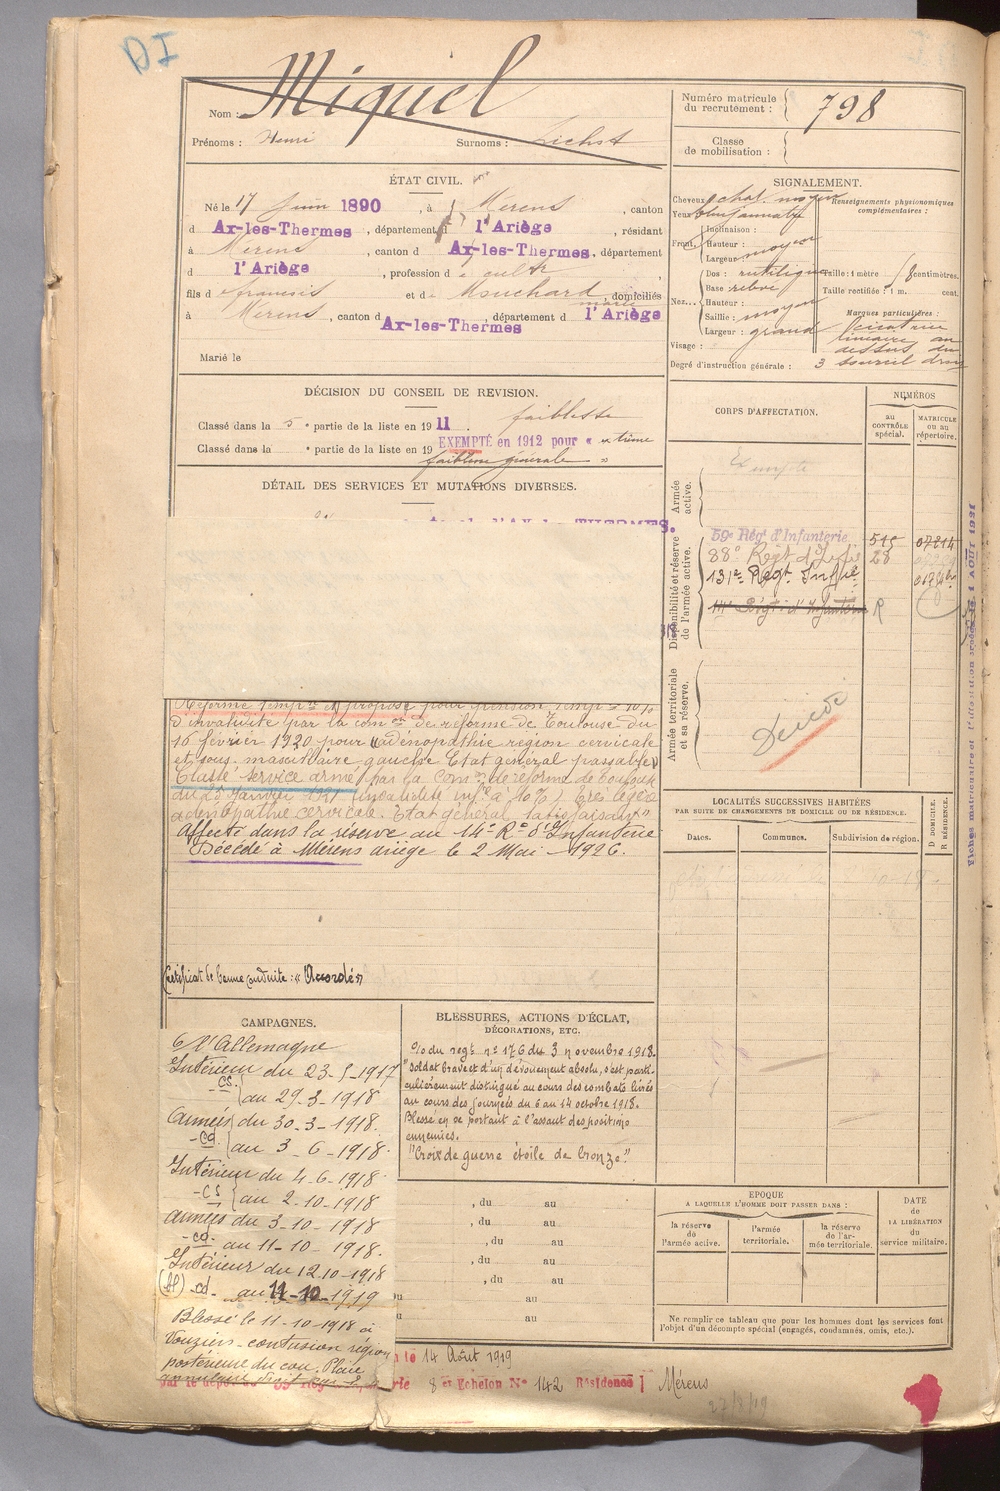 DI
Nom : Miquel
Prénoms : Henri Surnoms :
Numéro matricule du recrutement : 798
Classe de mobilisation :
ÉTAT CIVIL.
Né le 17 Juin 1890, à Merens, canton
d Ax-les-Thermes, département d l'Ariège, résidant
à Merens, canton d Ax-les-Thermes, département
d l'Ariège, profession de cult
fils d francois et de Mouchard marie, domiciliés
à Merens, canton d Ax-les-Thermes, département d l'Ariège
Marié le
SIGNALEMENT.
Cheveux chat. moyen
Yeux
Renseignements physionomiques complémentaires :
Front.
Inclinaison :
Hauteur : moyen
Largeur
Nez...
Dos : rectiligne
Base relevé
Hauteur :
Saillie : moyen
Largeur : grand
Visage :
Taille : 1 mètre centimètres.
Taille rectifiée : 1 m. cent.
Marques particulières :
linéaire au
dessus du
sourcil droit
Degré d'instruction générale : 3
DÉCISION DU CONSEIL DE REVISION.
Classé dans la 5e partie de la liste en 1911. faiblesse
Classé dans la e partie de la liste en 19 EXEMPTÉ en 1912 pour « extrême
faiblesse générale »
DÉTAIL DES SERVICES ET MUTATIONS DIVERSES.
THERMES.
Réformé temp.re et proposé pour pension temp.re 10%
d'invalidité par la com.on de réforme de Toulouse du
16 février 1920 pour "adénopathie région cervicale
et sous maxillaire gauche Etat général passable"
Classé service armé par la Com.on de réforme de Toulouse
du 25 Janvier 1921 (invalidité inf.re à 10%) Très légère
adénopathie cervicale. Etat général satisfaisant"
Affecté dans la réserve au 14e Rt d'Infanterie
Décédé à Mérens ariège le 2 Mai 1926.
Certificat de bonne conduite : "Accordé"
CORPS D'AFFECTATION.
NUMÉROS
au CONTRÔLE spécial.
MATRICULE ou au répertoire.
Armée active.
Exempté
Disponibilité et réserve de l'armée active.
59e Régt d'Infanterie 515 07214
88e Regt d'Infie 28
131e Regt Infie
14e Régt d'Infanterie R
Armée territoriale et sa réserve.
Décédé
LOCALITÉS SUCCESSIVES HABITÉES
PAR SUITE DE CHANGEMENTS DE DOMICILE OU DE RÉSIDENCE.
Dates. Communes. Subdivision de région. D DOMICILE. R RÉSIDENCE.
CAMPAGNES.
Cn l'Allemagne
Intérieur du 23-5-1917
-CS. au 29-3-1918
armées du 30-3-1918.
-cd. au 3-6-1918.
Intérieur du 4-6-1918.
-CS au 2-10-1918
armées du 3-10-1918
-cd. au 11-10-1918.
Intérieur du 12-10-1918
cd. au 11-10-1919
Blessé le 11-10-1918 à
Vouziers - contusion région
postérieure du cou. Plaie
annulaire droit
BLESSURES, ACTIONS D'ÉCLAT,
DÉCORATIONS, ETC.
O/o du regt no 176 du 3 novembre 1918.
"Soldat brave et d'un dévouement absolu, s'est parti-
culièrement distingué au cours des combats livrés
au cours des journées du 6 au 14 octobre 1918.
Blessé en se portant à l'assaut des positions
ennemies.
"Croix de guerre étoile de bronze"
, du au
, du au
, du au
, du au
, du au
du au
au
EPOQUE
A LAQUELLE L'HOMME DOIT PASSER DANS :
la réserve de l'armée active.
l'armée territoriale.
la réserve de l'armée territoriale.
DATE de LA LIBÉRATION du service militaire.
Ne remplir ce tableau que pour les hommes dont les services font
l'objet d'un décompte spécial (engagés, condamnés, omis, etc.).
le 14 Août 1919
8e Echelon No 142 Résidence Mérens
22/8/19